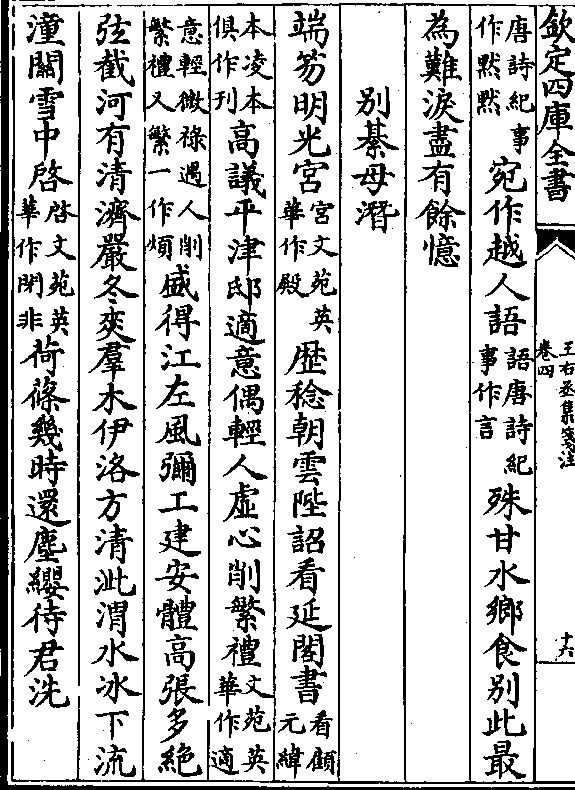 欽定四庫全書
王右丞集箋注
卷四
十六
唐詩紀事作黙黙宛作越人語語唐詩紀事作言殊甘水鄉食别此最
為難淚盡有餘憶
别綦母潛
端笏明光宮宮文苑英華作殿歴稔朝雲陛詔看延閣書看顧元緯
本凌本俱作刋高議平津邸適意偶輕人虛心削繁禮文苑英華作適
意輕微祿遇人削繁禮又繁一作煩盛得江左風彌工建安體高張多絶
弦截河有清濟嚴冬爽羣木伊洛方清泚渭水冰下流
潼關雪中啓啓文苑英華作閉非荷蓧幾時還塵纓待君洗